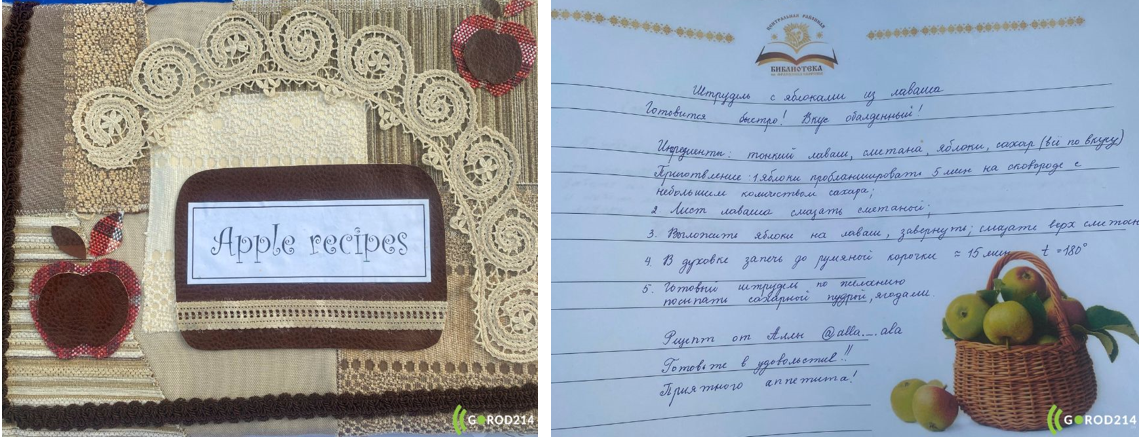 Apple recipes
GOROD214
ЦЕНТРАЛЬНАЯ РАЙОННАЯ
БИБЛИОТЕКА
Штрудель с яблоками из лаваша
Готовится быстро! Вкус обалденный!
Ингредиенты: тонкий лаваш, сметана, яблоки, сахар (всё по вкусу)
Приготвление: 1 яблоки пробланшировать 5 мин на сковороде с
небольшим количеством сахара;
2 Лист лаваша смазать сметаной;
3. Выложить яблоки на лаваш, завернуть; смазать верх сметан
4. В духовке запечь до румяной корочки ≈ 15 мин t = 180°
5. Готовый штрудель по желанию
посыпать сахарной пудрой, ягодами.
Рецепт от Аллы @alla__ala
Готовьте в удовольствие!!
Приятного аппетита!
GOROD214